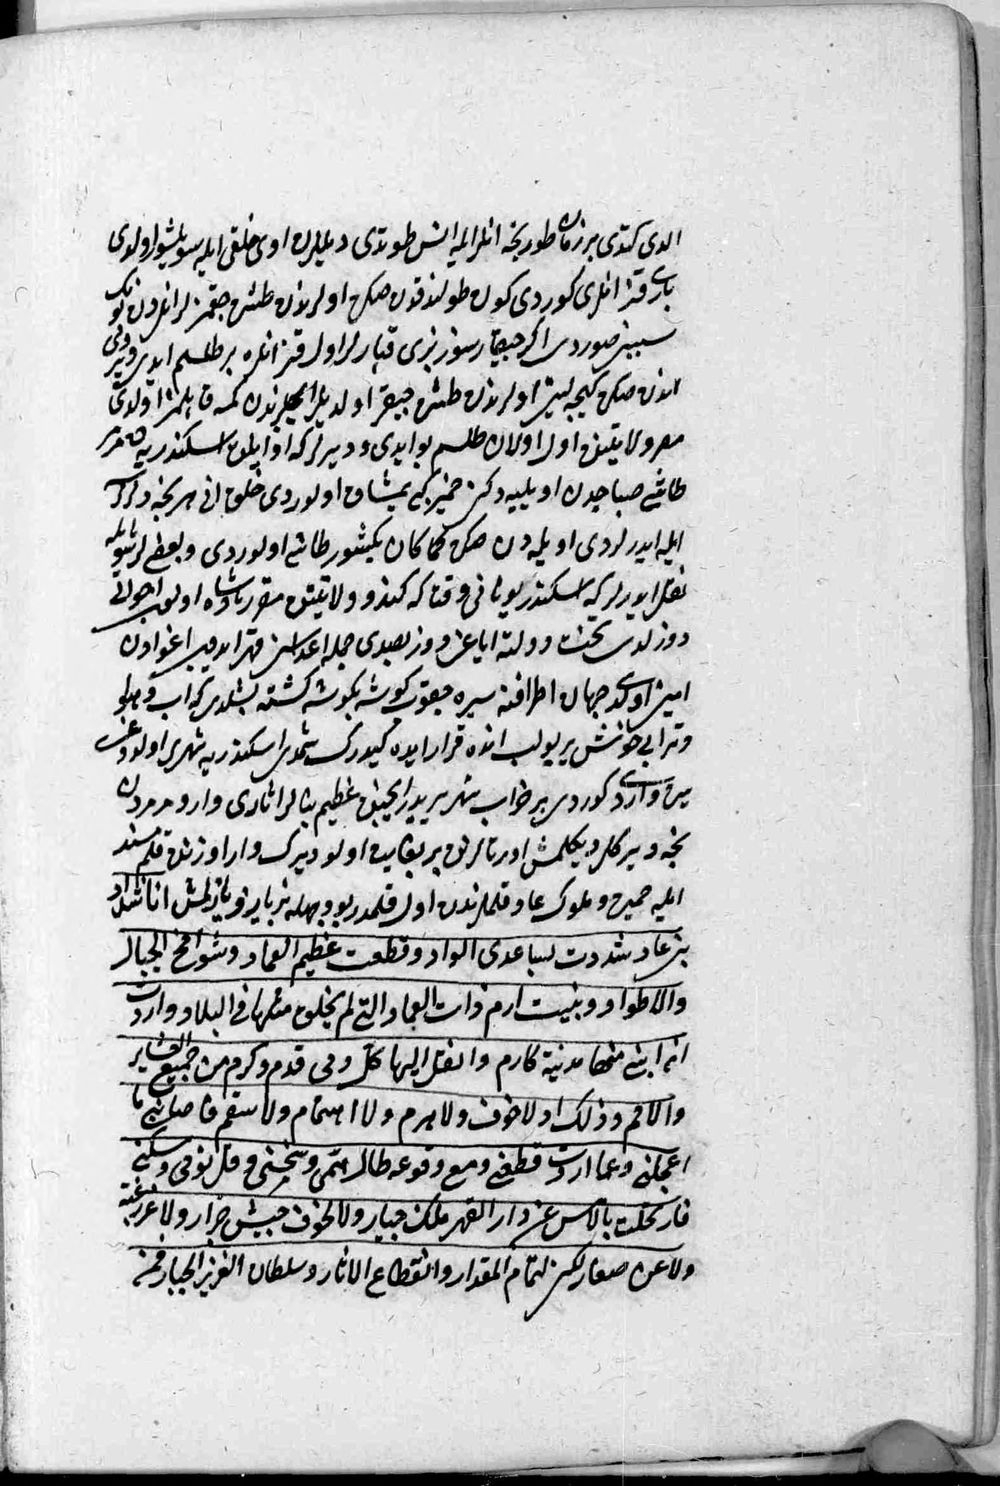 الدی کتدی بر زمان طوریجه انلر ایله انس طوتدی دیللرن اوی خلقی ایله سویلشور اولدی
باری قز انلری کوردی کون طولندقدن صکره اولرندن طشره چقمزلر انلردن بونک
سببین صوردی اکر چیقارسوز بزی قپارلر اول قز انلره بر طلسم ایدی ویردی
اندن صکره کیجه لین اولرندن طشره چیقر اولدیلر ایچلرندن کمسه قاپلمز اولدی
مصر ولایتنده اول اولان طلسم بو ایدی و دیرلر که اوایلده اسکندریه ده مرمر
طاشی صباحدن اویلیه دکین خمیر کبی یمشاق اولوردی خلق انی هر نجه دلرلرسه
ایله ایدرلردی اویله دن صکره کما کان پکیشور طاش اولوردی و بعضیلر شویله
نقل ایدرلر که اسکندر یونانی وقتا که کندو ولایتنده مقرر پادشاه اولوب احوالی
دوزلدی تخت دولته ایاغن دوز بصدی جمله اعداسن قهر ایدوب اغوادن
امین اولدی جهان اطرافنه سیره چیقوب کوشه بکوشه کشته بشلدی که آب و هوا
و ترابی خوش بر یر بولب انده قرار ایده کیدرک شمدی اسکندریه شهری اولدوغی
یره واردی کوردی بر خراب شهر یریدر ایچنده عظیم بنالر اثاری وار و مرمردن
نجه دیرکلر دیکلمش اورتالرنده بر بغایت اولو دیرک وار اوزرنده قلم مسند
ایله حمیر و ملوک عاد قلملرندن اول قلمدر بو وجهله نر یازو یازلمش انا شداد
بن عاد شددت لساعدی الواد و قطعت عظیم العماد و شوامخ الجبال
والاطواد و بنیت ارم ذات العماد التی لم یخلق مثلها فی البلاد و اردت
ان ابنی ههنا مدینة کارم وانقل الیها کل ذی قدم و کرم من جمیع العشایر
والامم و ذلک اذ لا خوف ولا هرم ولا اهتمام ولا سقم فاصابنی ما
اعجلنی و عما اردت قطعنی و مع وقوعه طال همی و شجنی و قل نومی و سکنی
فارتحلت بالامس عن دار لا لقهر ملک جبار ولا لخوف جیش جرار ولا عن رغبة
ولا عن صغار لکن لتمام المقدار وانقطاع الاثار و سلطان العزیز الجبار فمن